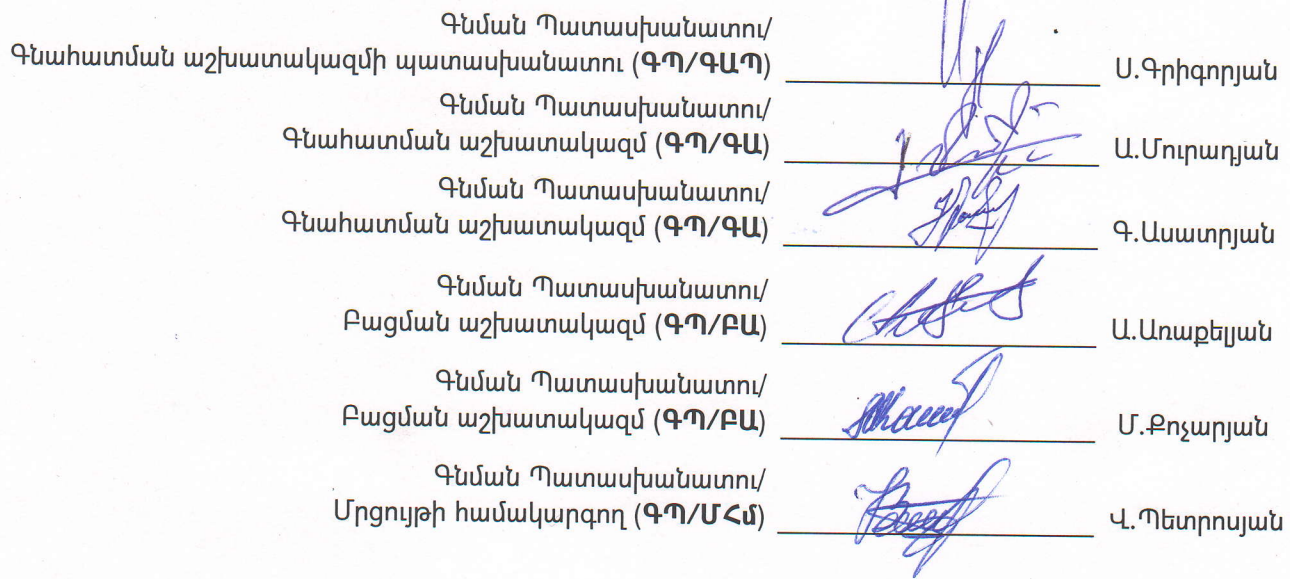 Գնման Պատասխանատու/
Գնահատման աշխատակազմի պատասխանատու (ԳՊ/ԳԱՊ) Ս.Գրիգորյան
Գնման Պատասխանատու/
Գնահատման աշխատակազմ (ԳՊ/ԳԱ) Ա.Մուրադյան
Գնման Պատասխանատու/
Գնահատման աշխատակազմ (ԳՊ/ԳԱ) Գ.Ասատրյան
Գնման Պատասխանատու/
Բացման աշխատակազմ (ԳՊ/ԲԱ) Ա.Առաքելյան
Գնման Պատասխանատու/
Բացման աշխատակազմ (ԳՊ/ԲԱ) Մ.Քոչարյան
Գնման Պատասխանատու/
Մրցույթի համակարգող (ԳՊ/ՄՀմ) Վ.Պետրոսյան